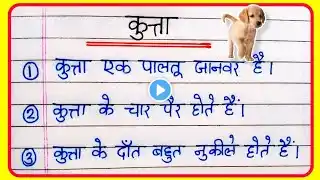 कुत्ता
① कुत्ता एक पालतू जानवर है।
② कुत्ता के चार पैर होते हैं।
③ कुत्ता के दाँत बहुत नुकीले होते हैं।